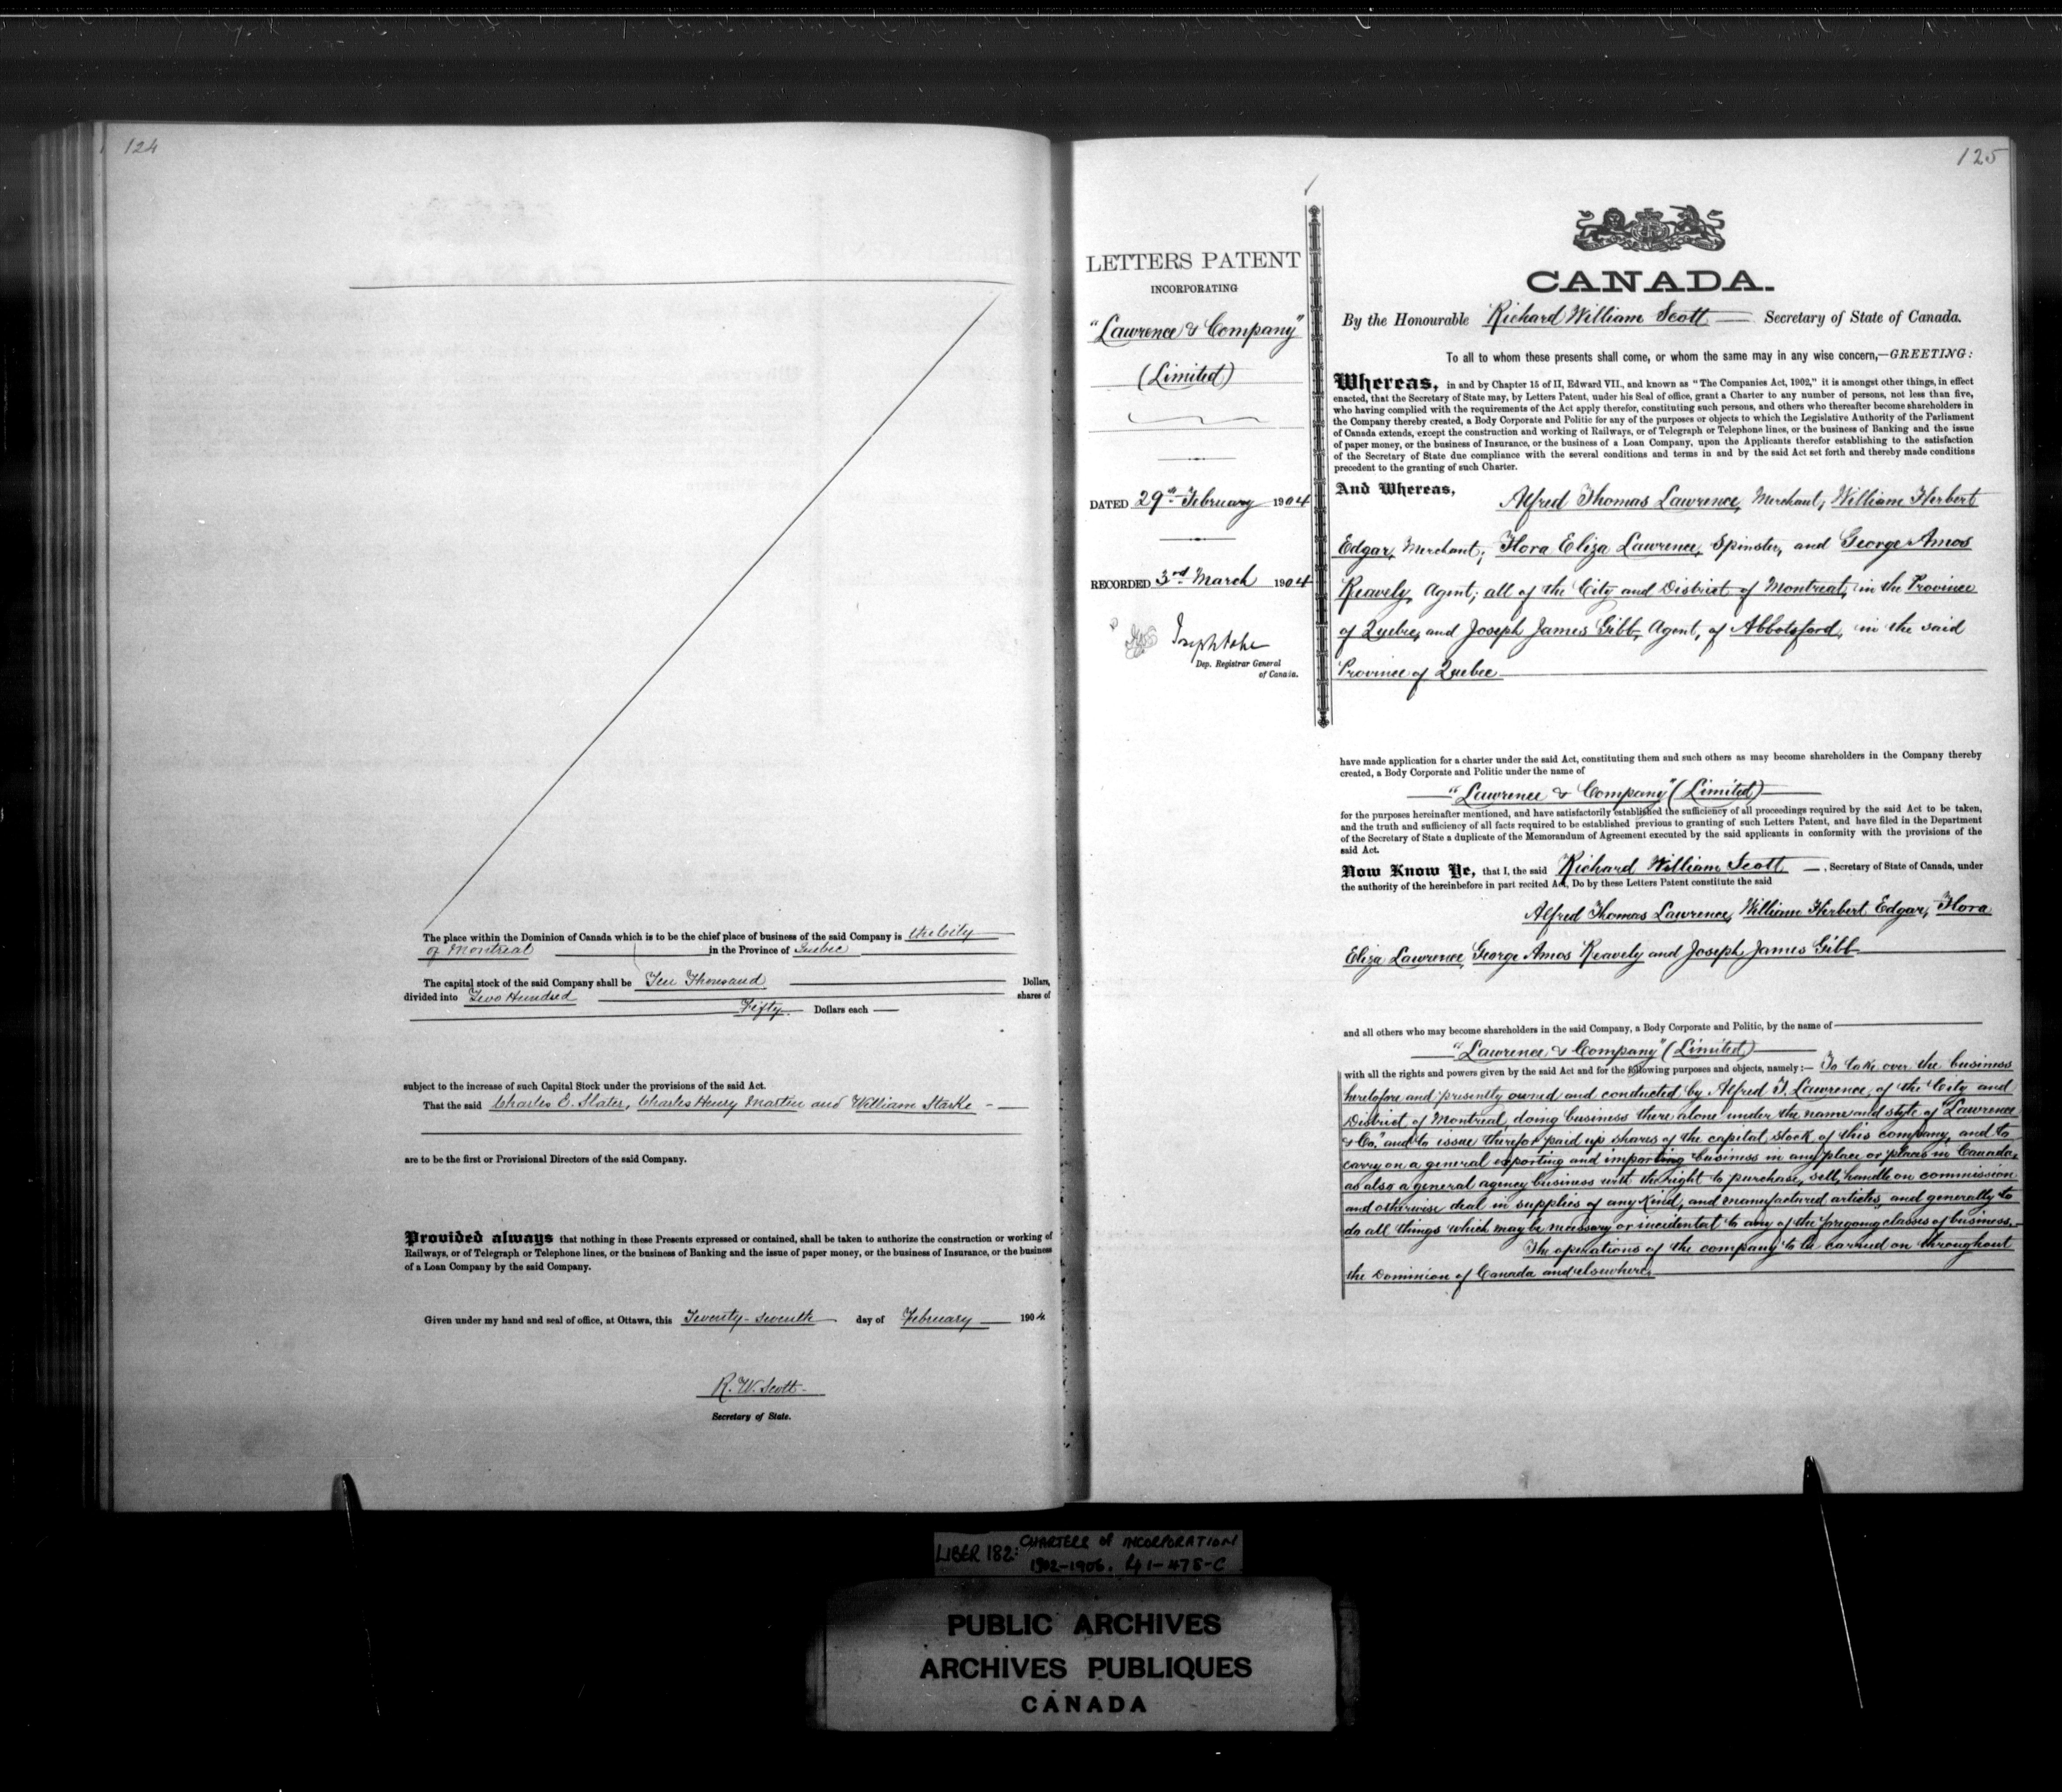 124
The place within the Dominion of Canada which is to be the chief place of business of the said Company is the City
of Montreal in the Province of Quebec
The capital stock of the said Company shall be Ten Thousand Dollars,
divided into Two Hundred shares of
Fifty Dollars each
subject to the increase of such Capital Stock under the provisions of the said Act.
That the said Charles E. Slater, Charles Henry Martin and William Starke
are to be the first or Provisional Directors of the said Company.
Provided always that nothing in these Presents expressed or contained, shall be taken to authorize the construction or working of
Railways, or of Telegraph or Telephone lines, or the business of Banking and the issue of paper money, or the business of Insurance, or the business
of a Loan Company by the said Company.
Given under my hand and seal of office, at Ottawa, this Twenty-seventh day of February 1904
R. W. Scott
Secretary of State.
125
LETTERS PATENT
INCORPORATING
"Lawrence & Company"
(Limited)
DATED 29th February 1904
RECORDED 3rd March 1904
Joseph
Dep. Registrar General
of Canada.
CANADA.
By the Honourable Richard William Scott Secretary of State of Canada.
To all to whom these presents shall come, or whom the same may in any wise concern,—GREETING:
Whereas, in and by Chapter 15 of II, Edward VII., and known as "The Companies Act, 1902," it is amongst other things, in effect
enacted, that the Secretary of State may, by Letters Patent, under his Seal of office, grant a Charter to any number of persons, not less than five,
who having complied with the requirements of the Act apply therefor, constituting such persons, and others who thereafter become shareholders in
the Company thereby created, a Body Corporate and Politic for any of the purposes or objects to which the Legislative Authority of the Parliament
of Canada extends, except the construction and working of Railways, or of Telegraph or Telephone lines, or the business of Banking and the issue
of paper money, or the business of Insurance, or the business of a Loan Company, upon the Applicants therefor establishing to the satisfaction
of the Secretary of State due compliance with the several conditions and terms in and by the said Act set forth and thereby made conditions
precedent to the granting of such Charter.
And Whereas, Alfred Thomas Lawrence, Merchant; William Herbert
Edgar, Merchant; Flora Eliza Lawrence, Spinster, and George Amos
Reavely, Agent; all of the City and District of Montreal, in the Province
of Quebec, and Joseph James Gibb, Agent, of Abbotsford, in the said
Province of Quebec
have made application for a charter under the said Act, constituting them and such others as may become shareholders in the Company thereby
created, a Body Corporate and Politic under the name of
"Lawrence & Company" (Limited)
for the purposes hereinafter mentioned, and have satisfactorily established the sufficiency of all proceedings required by the said Act to be taken,
and the truth and sufficiency of all facts required to be established previous to granting of such Letters Patent, and have filed in the Department
of the Secretary of State a duplicate of the Memorandum of Agreement executed by the said applicants in conformity with the provisions of the
said Act.
Now Know Ye, that I, the said Richard William Scott, Secretary of State of Canada, under
the authority of the hereinbefore in part recited Act, Do by these Letters Patent constitute the said
Alfred Thomas Lawrence, William Herbert Edgar, Flora
Eliza Lawrence, George Amos Reavely and Joseph James Gibb
and all others who may become shareholders in the said Company, a Body Corporate and Politic, by the name of
"Lawrence & Company" (Limited)
with all the rights and powers given by the said Act and for the following purposes and objects, namely:— To take over the business
heretofore and presently owned and conducted by Alfred T. Lawrence, of the City and
District of Montreal, doing business there alone under the name and style of "Lawrence
& Co," and to issue therefor paid up shares of the capital stock of this company, and to
carry on a general exporting and importing business in any place or places in Canada,
as also a general agency business with the right to purchase, sell, handle on commission
and otherwise deal in supplies of any kind, and manufactured articles, and generally to
do all things which may be necessary or incidental to any of the foregoing classes of business.
The operations of the company to be carried on throughout
the Dominion of Canada and elsewhere.
LIBER 182: CHARTERS OF INCORPORATION
1902-1906. 41-475-C
PUBLIC ARCHIVES
ARCHIVES PUBLIQUES
CANADA